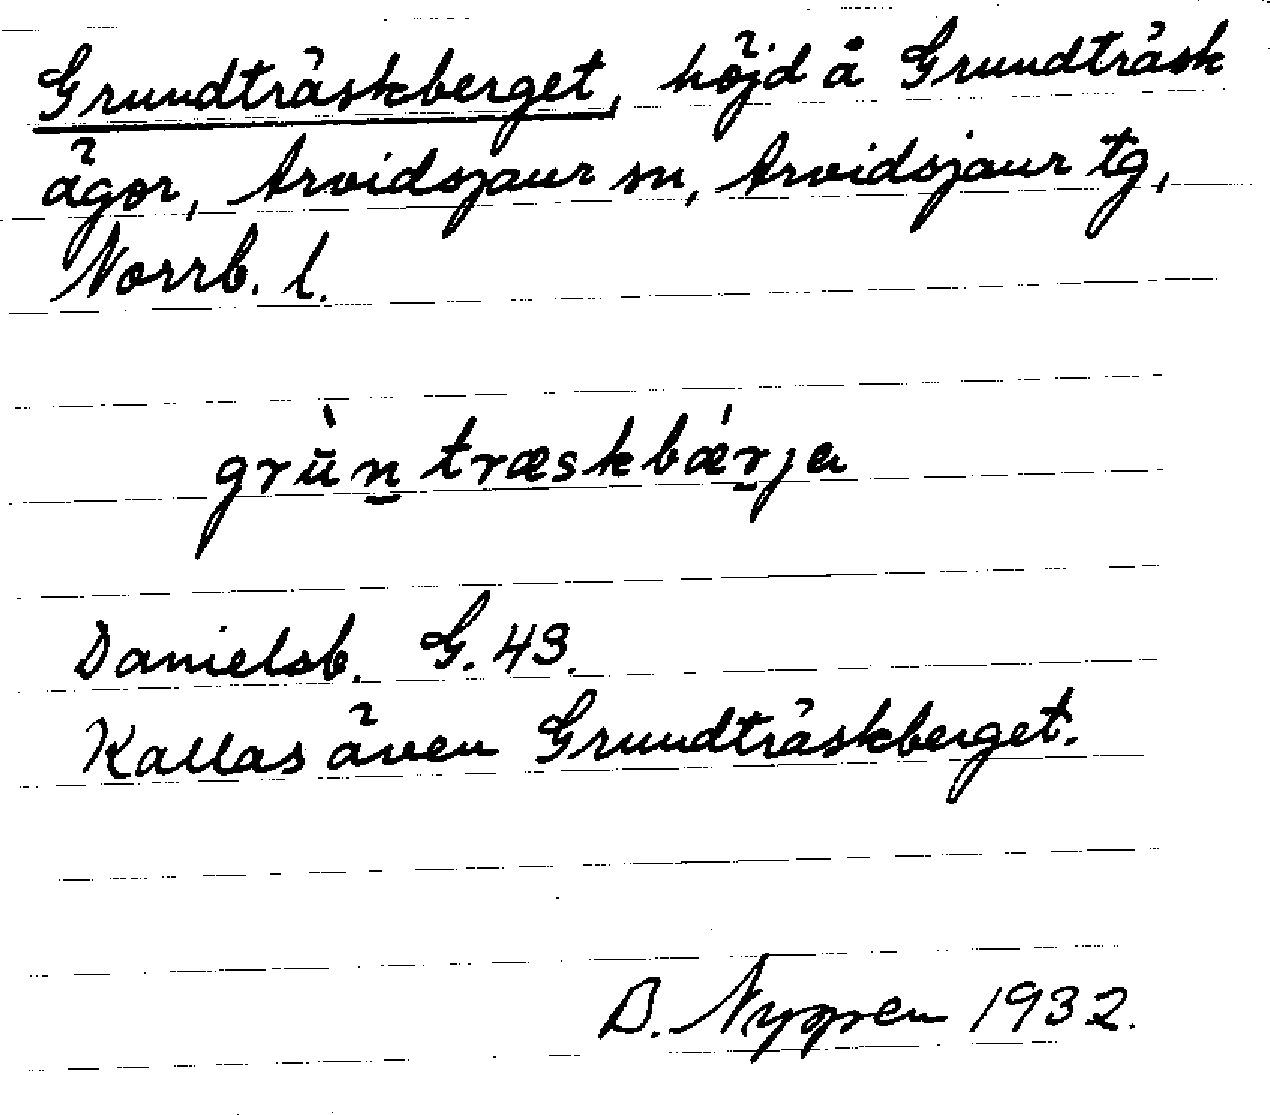 Grundträskberget, höjd å Grundträsk
ägor, Arvidsjaur sn, Arvidsjaur tg,
Norrb. l.
grù̄n̲træskbǽr̲ja
Danielsb. G. 43.
Kallas även Grundträskberget.
B. Nyppen 1932.